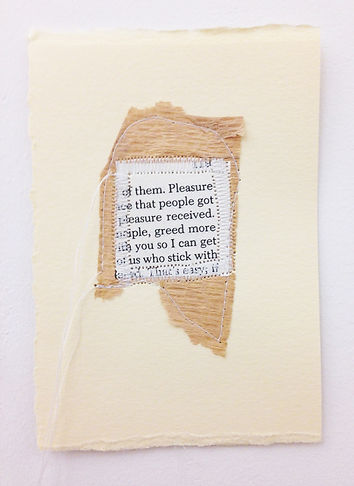 of them. Pleasure
that people got
pleasure received.
greed more
you so I can get
us who stick with
That's easy, if